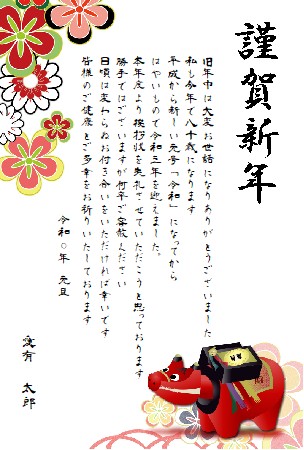 謹賀新年
旧年中は大変お世話になりありがとうございました
私も今年で八十歳になります
平成から新しい元号「令和」になってから
はやいもので令和三年を迎えました。
本年度より挨拶状を失礼させていただこうと思っております
勝手ではございますが何卒ご容赦ください
日頃は変わらぬお付き合いをいただければ幸いです
皆様のご健康とご多幸をお祈りいたしております
令和〇年 元旦
愛有 太郎